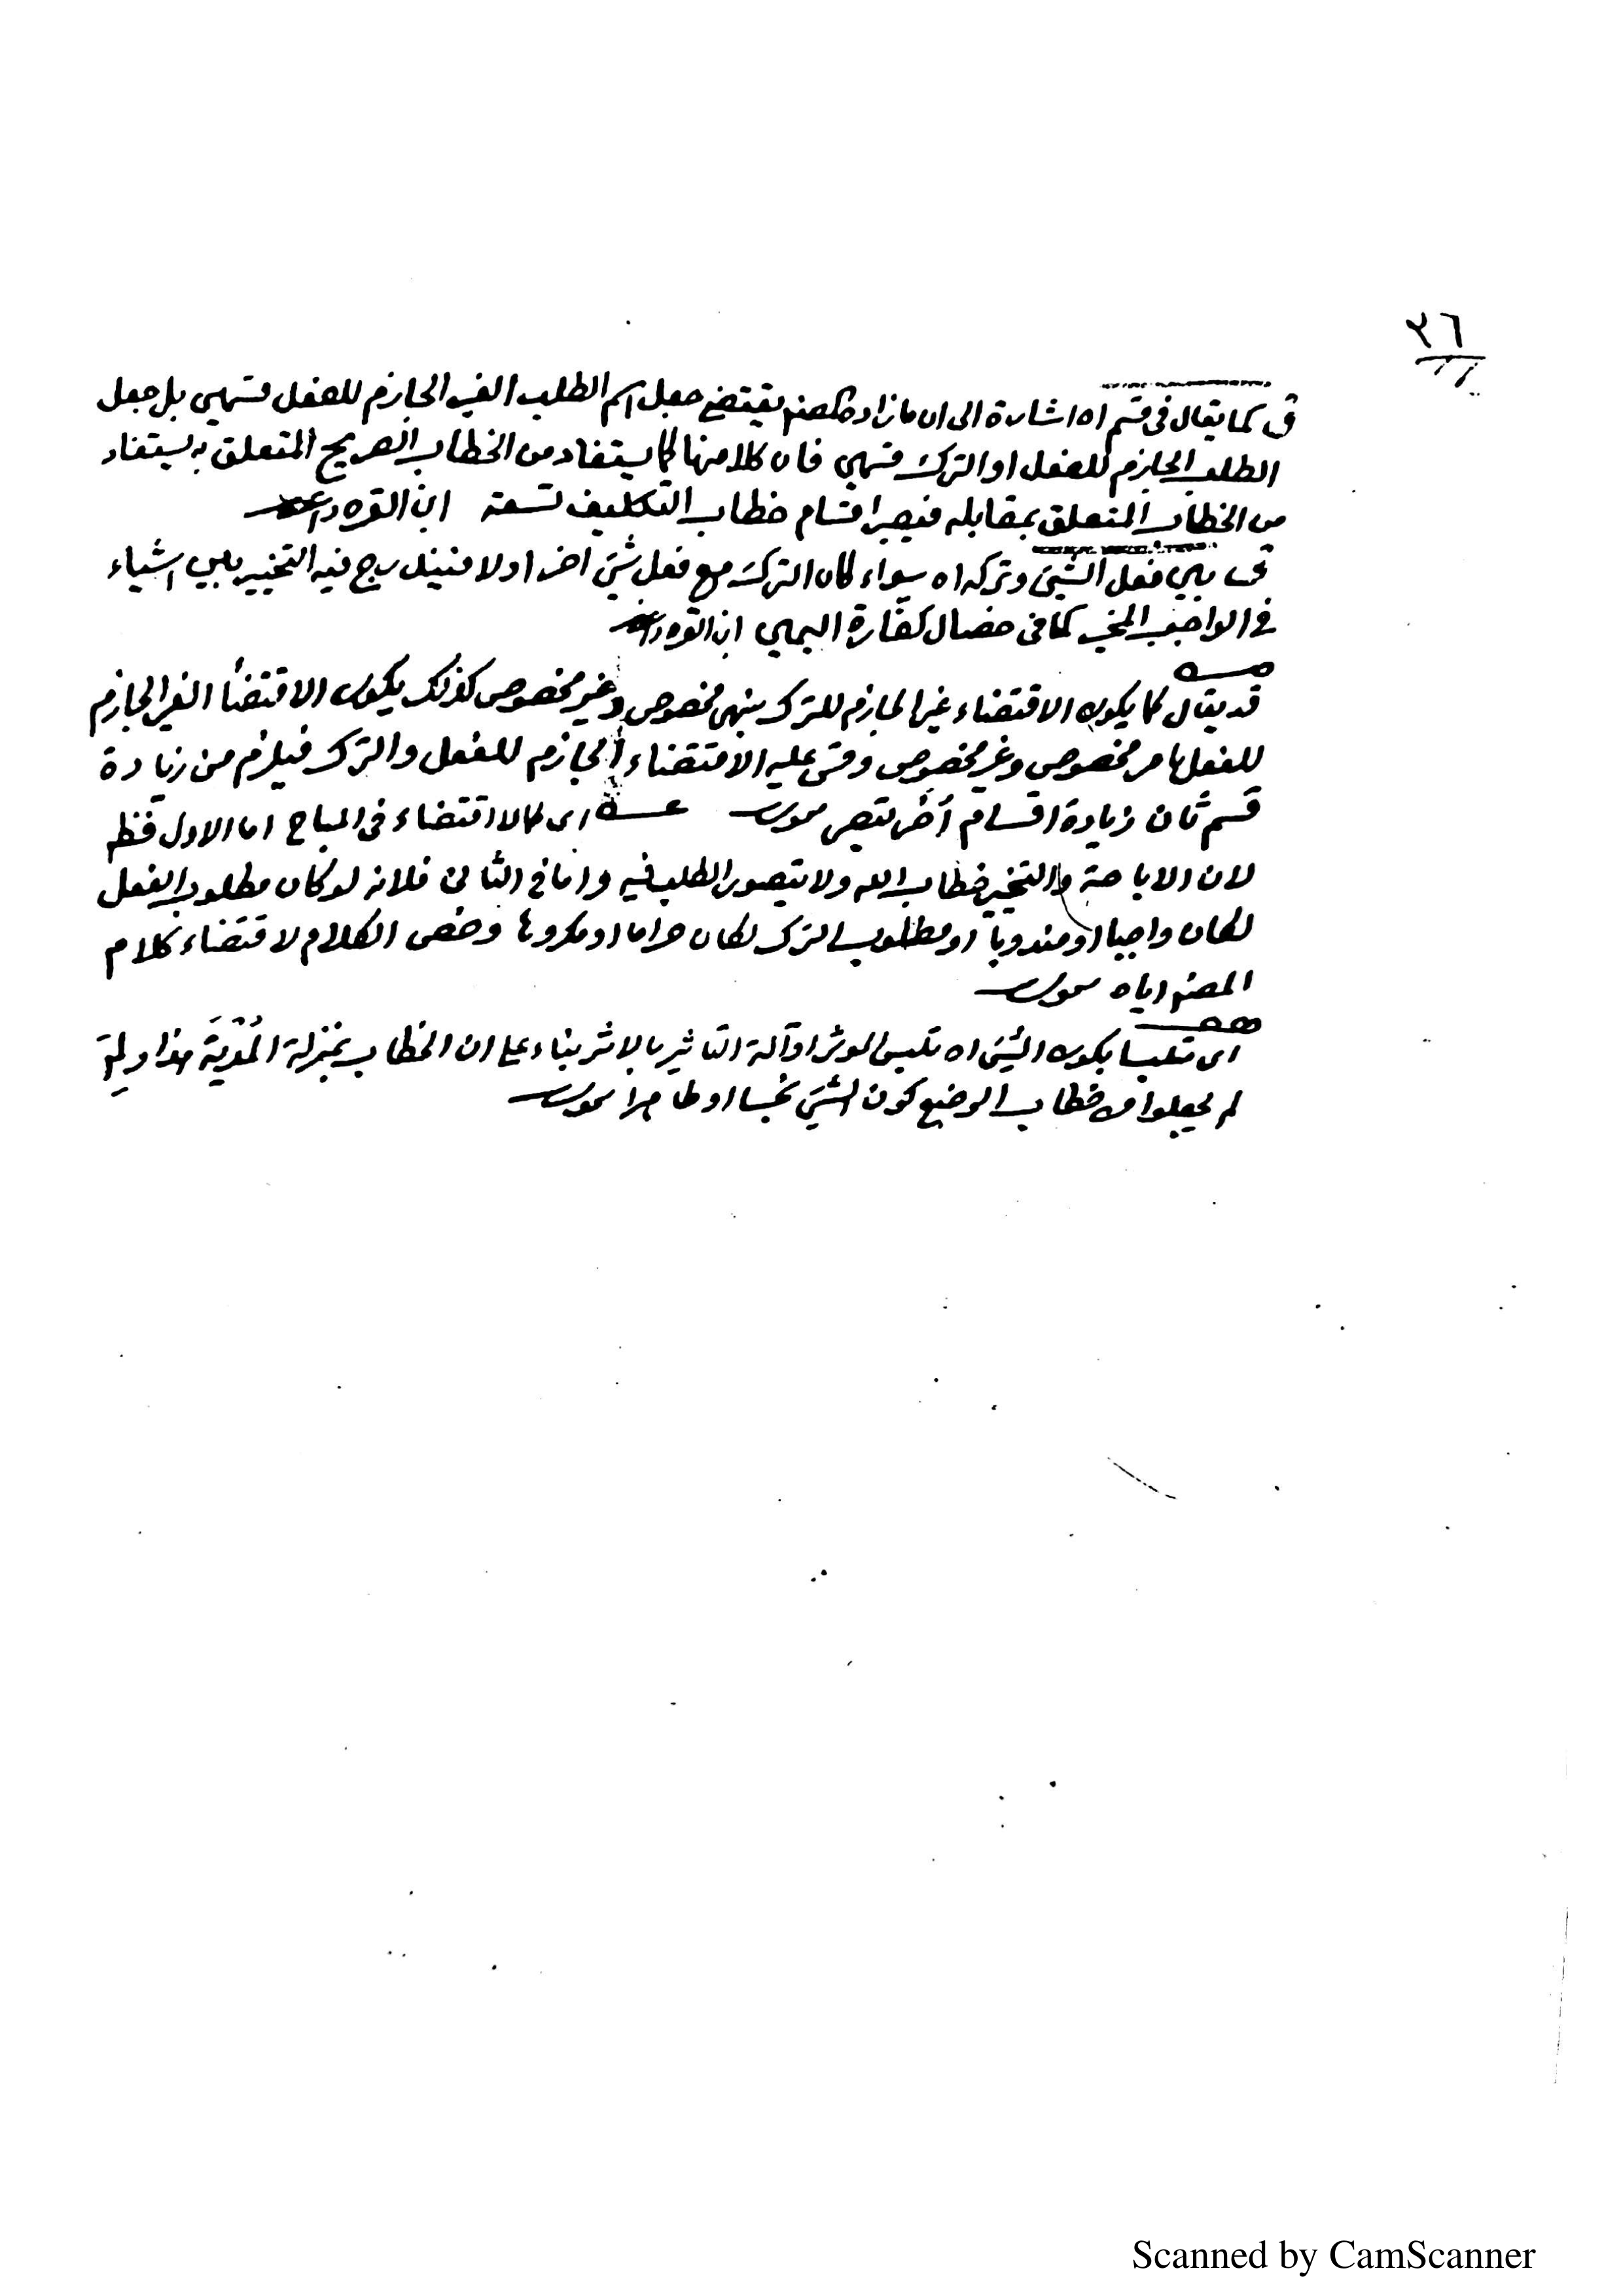 ٣٦
ق كما يقال فى قسم اه اشارة الى ان ما زاده المصنف يقتضى جعل اسم الطلب الغير الجازم للفعل قسمين بل جعل
الطلب الجازم للفعل او الترك قسمين فان كلا منها كما يستفاد من الخطاب الصريح المتعلق به يستفاد
من الخطاب المتعلق بمقابله فيصير اقسام خطاب التكليف تسعة ابن القره داغى
قـ بين فعل الشيئ وتركه اه سواء كان الترك مع فعل شئ اخر اولا فيندرج فيه التخيير بين اشياء
فى الواجب المخير كما فى خصال كفارة اليمين ابن القره داغى
قد يقال كما يكون الاقتضاء غير الجازم للترك بنهى مخصوص وغير مخصوص كذلك يكون الاقتضأ الغير الجازم
للفعل بامر مخصوص وغير مخصوص وقس عليه الاقتضاء الجازم للفعل والترك فيلزم من زيادة
قسم ثان زيادة اقسام أخر اى كالا اقتضاء فى المباح اما الاول فظ
لان الاباحة والتخيير خطاب الله ولا يتصور الطلب فيه واما فى الثانى فلانه لو كان مطلوب الفعل
لكان واجبا او مندوبا او مطلوب الترك لكان حراما او مكروها وخص الكلام لاقتضاء كلام
المصنف اياه
اى متلبسا بكون الشيئ اه تلبس المؤثر او آلة التاثير بالاثر بناء على ان الخطاب بمنزلة هذا ولم
لم يجعلوا من خطاب الوضع كون الشيئ نجسا او طاهرا
Scanned by CamScanner